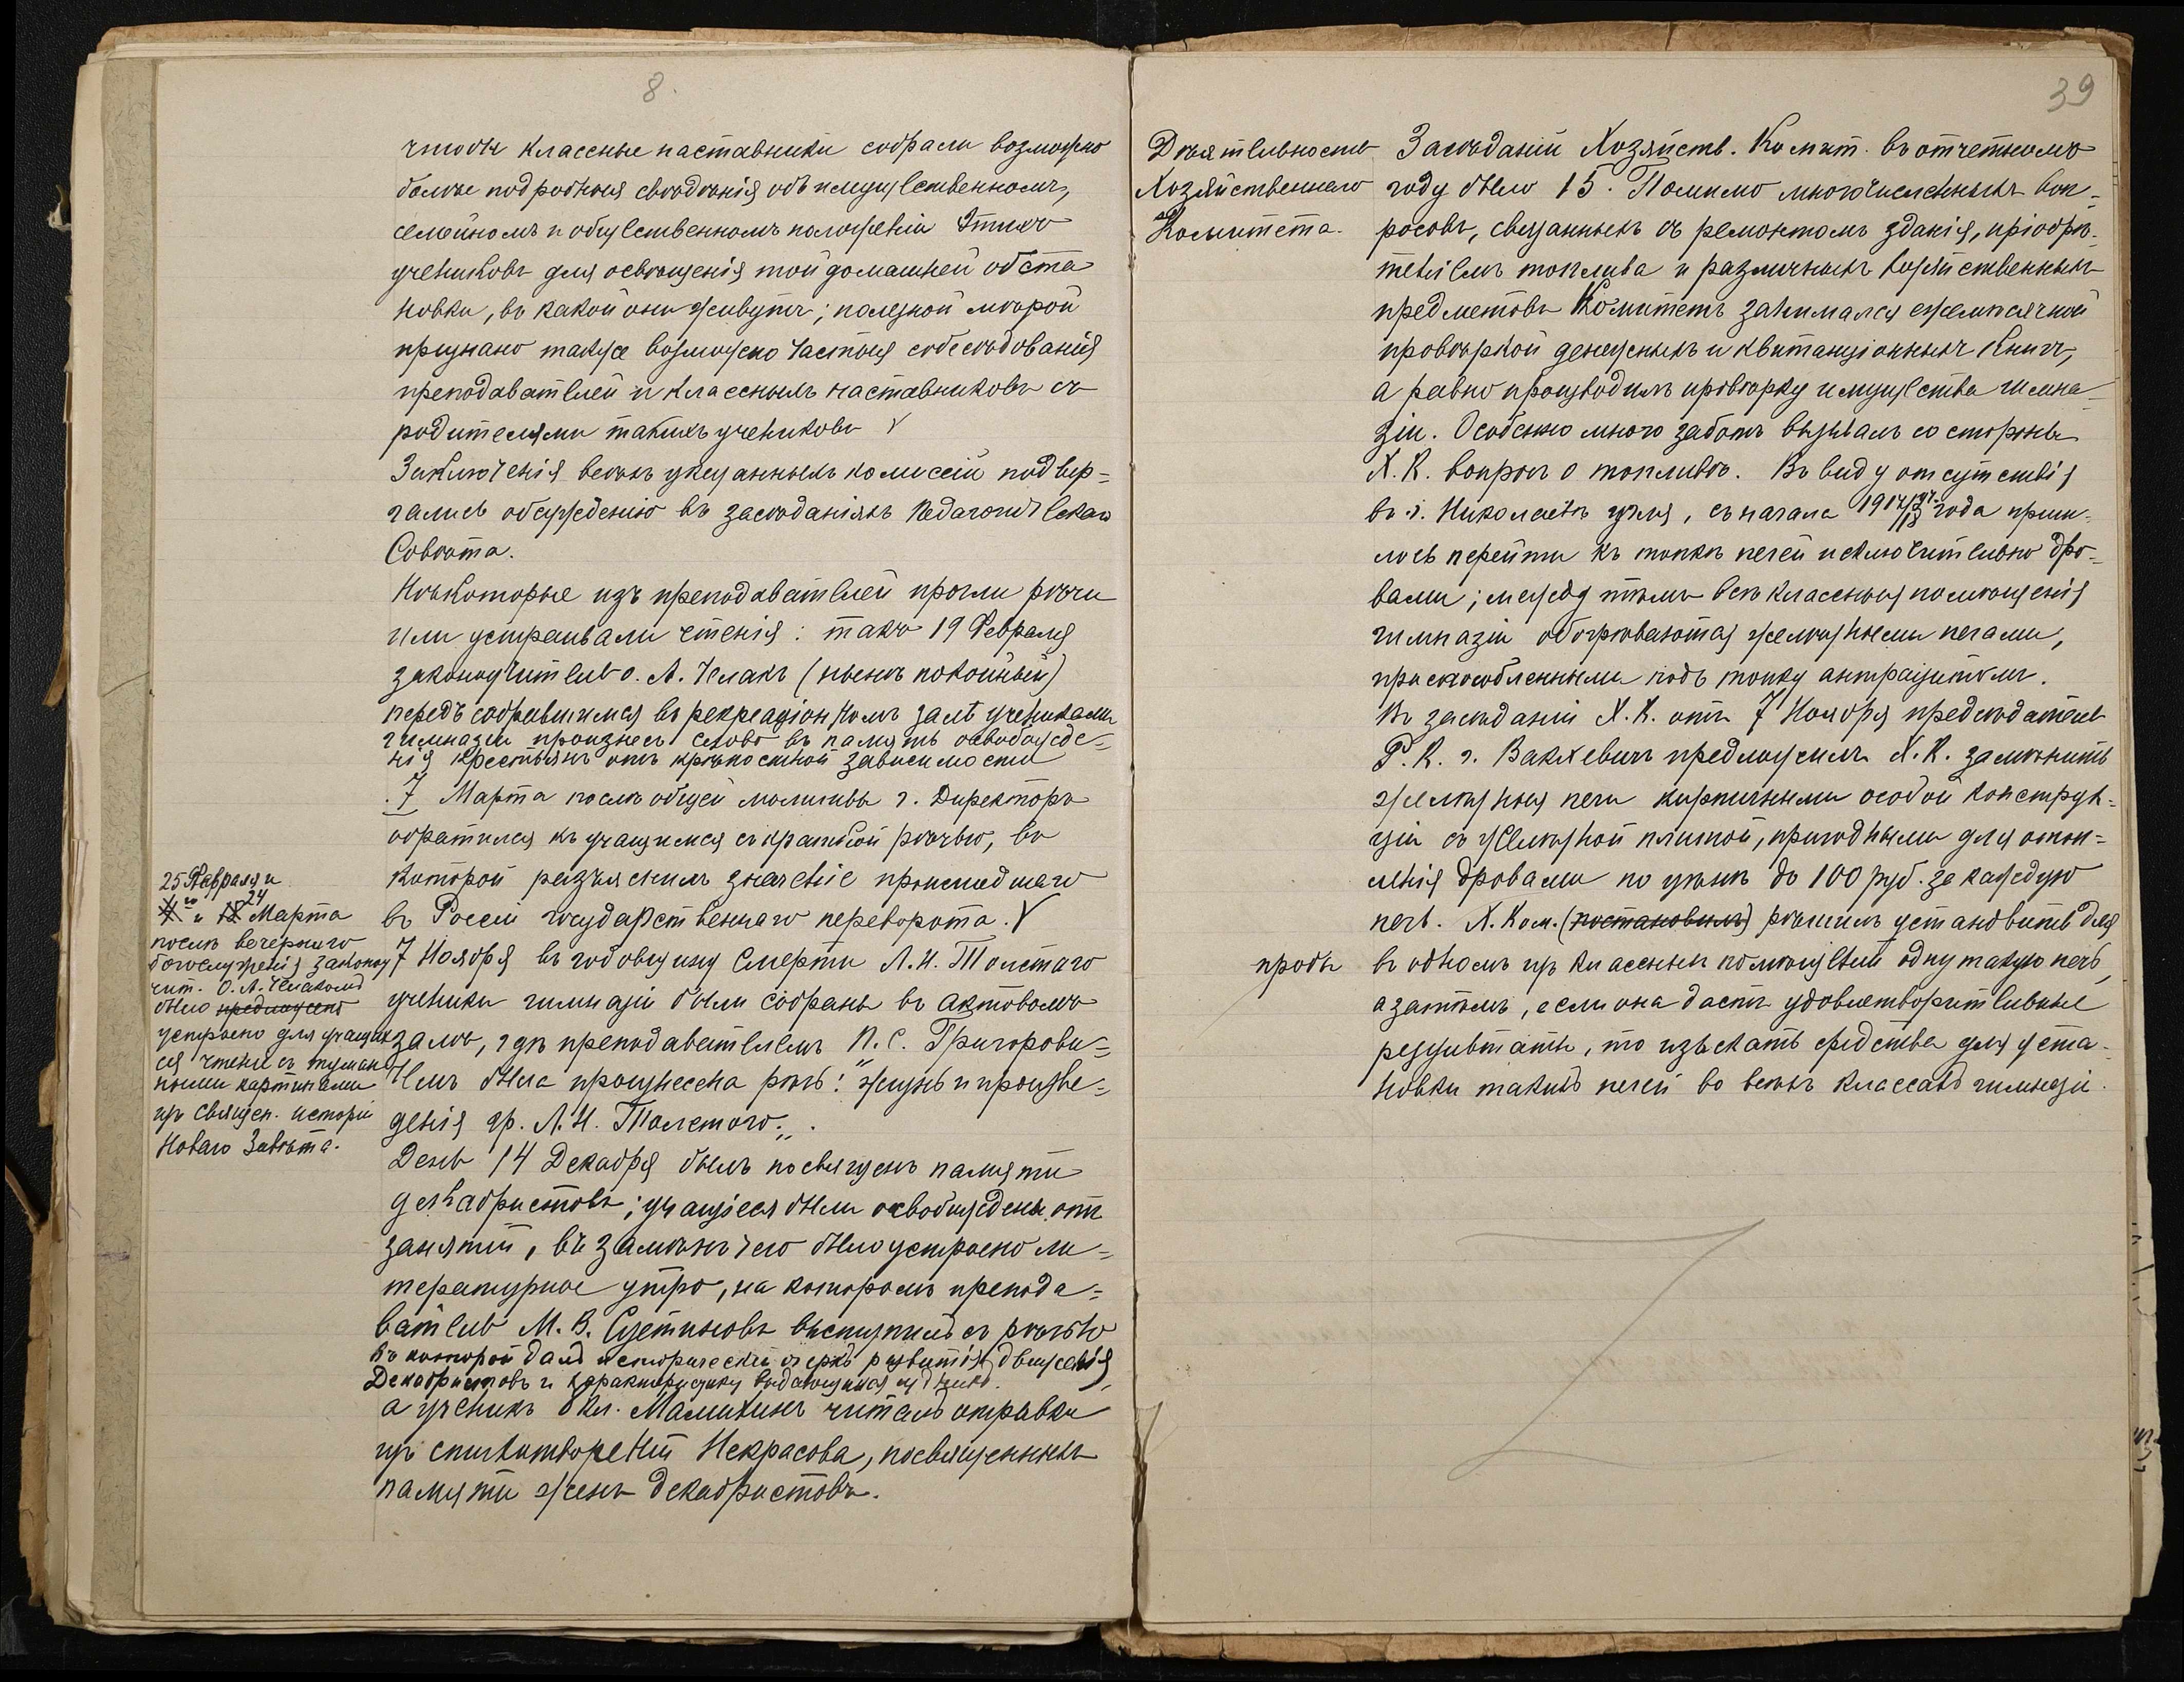 8.
чтобы классные наставники собрали возможно
болѣе подробныя свѣдѣнія объ имущественномъ,
семейномъ и общественномъ положеніи этихъ
учениковъ для освѣщенія той домашней обста
новки, въ какой они живутъ; полезной мѣрой
признано также возможно частыя собесѣдованія
преподавателей и классныхъ наставниковъ съ
родителями такихъ учениковъ
Заключенія всѣхъ указанныхъ комиссій подвер=
гались обсужденію въ засѣданіяхъ Педагогическаго
Совѣта.
Нѣкоторые изъ преподавателей прочли рѣчи
или устраивали чтенія: такъ 19 Февраля
законоучитель о. А. Челакъ (нынѣ покойный)
передъ собравшимися въ рекреаціонномъ залѣ учениками
гимназіи произнесъ слово въ память освобожде=
нія крестьянъ отъ крѣпостной зависимости
7 Марта послѣ общей молитвы г. Директоръ
обратился къ учащимся съ краткой рѣчью, въ
которой разъяснилъ значеніе происшедшаго
въ Россіи государственнаго переворота.
25 Февраля и
4 и 18 24 Марта
послѣ вечерняго
богослуженія законоу
чит. О. А. Челакомъ
было предложено
устроено для учащих
ся чтеніе съ туман
ными картинами
изъ священ. исторіи
Новаго Завѣта.
7 Ноября въ годовщину смерти Л. Н. Толстаго
ученики гимназіи были собраны въ актовомъ
залѣ, гдѣ преподавателемъ П. С. Григорови=
чемъ была произнесена рѣчь: "жизнь и произве=
денія гр. Л. Н. Толстого".
День 14 Декабря былъ посвященъ памяти
декабристовъ; учащіеся были освобождены отъ
занятій, въ замѣнъ чего было устроено ли=
тературное утро, на которомъ препода=
ватель М. В. выступилъ съ рѣчью
въ которой далъ историческій очеркъ развитія движенія
Декабристовъ и характеристику выдающихся изъ нихъ.
а ученикъ 8 кл. читалъ отрывки
изъ стихотвореній Некрасова, посвященныхъ
памяти женъ декабристовъ.
39
Дѣятельность
Хозяйственнаго
Комитета.
Засѣданій Хозяйств. Комит. въ отчетномъ
году было 15. Помимо многочисленныхъ воп-
росовъ, связанныхъ съ ремонтомъ зданія, пріобрѣ-
теніемъ топлива и различныхъ хозяйственныхъ
предметовъ Комитетъ занимался ежемѣсячной
провѣркой денежныхъ и квитанціонныхъ книгъ,
а равно производилъ провѣрку имущества гимна-
зіи. Особенно много заботъ вызывалъ со стороны
Х. К. вопросъ о топливѣ. Въ виду отсутствія
въ г. Николаевѣ угля, съ начала 1917/18 уч. года приш-
лось перейти къ топкѣ печей исключительно дро-
вами; между тѣмъ всѣ классныя помѣщенія
гимназіи обогрѣваются желѣзными печами,
приспособленными подъ топку антрацитомъ.
Въ засѣданіи Х. К. отъ 7 Ноября предсѣдатель
Р. К. г. Вакхевичъ предложилъ Х. К. замѣнить
желѣзныя печи кирпичными особой конструк=
ціи съ желѣзной плитой, пригодными для отоп=
ленія дровами по цѣнѣ до 100 руб. за каждую
печь. Х. Ком. (постановилъ) рѣшилъ установить для
пробы
въ одномъ изъ классныхъ помѣщеній одну такую печь,
а затѣмъ, если она дастъ удовлетворительные
результаты, то изыскать средства для уста-
новки такихъ печей во всѣхъ классахъ гимназіи.